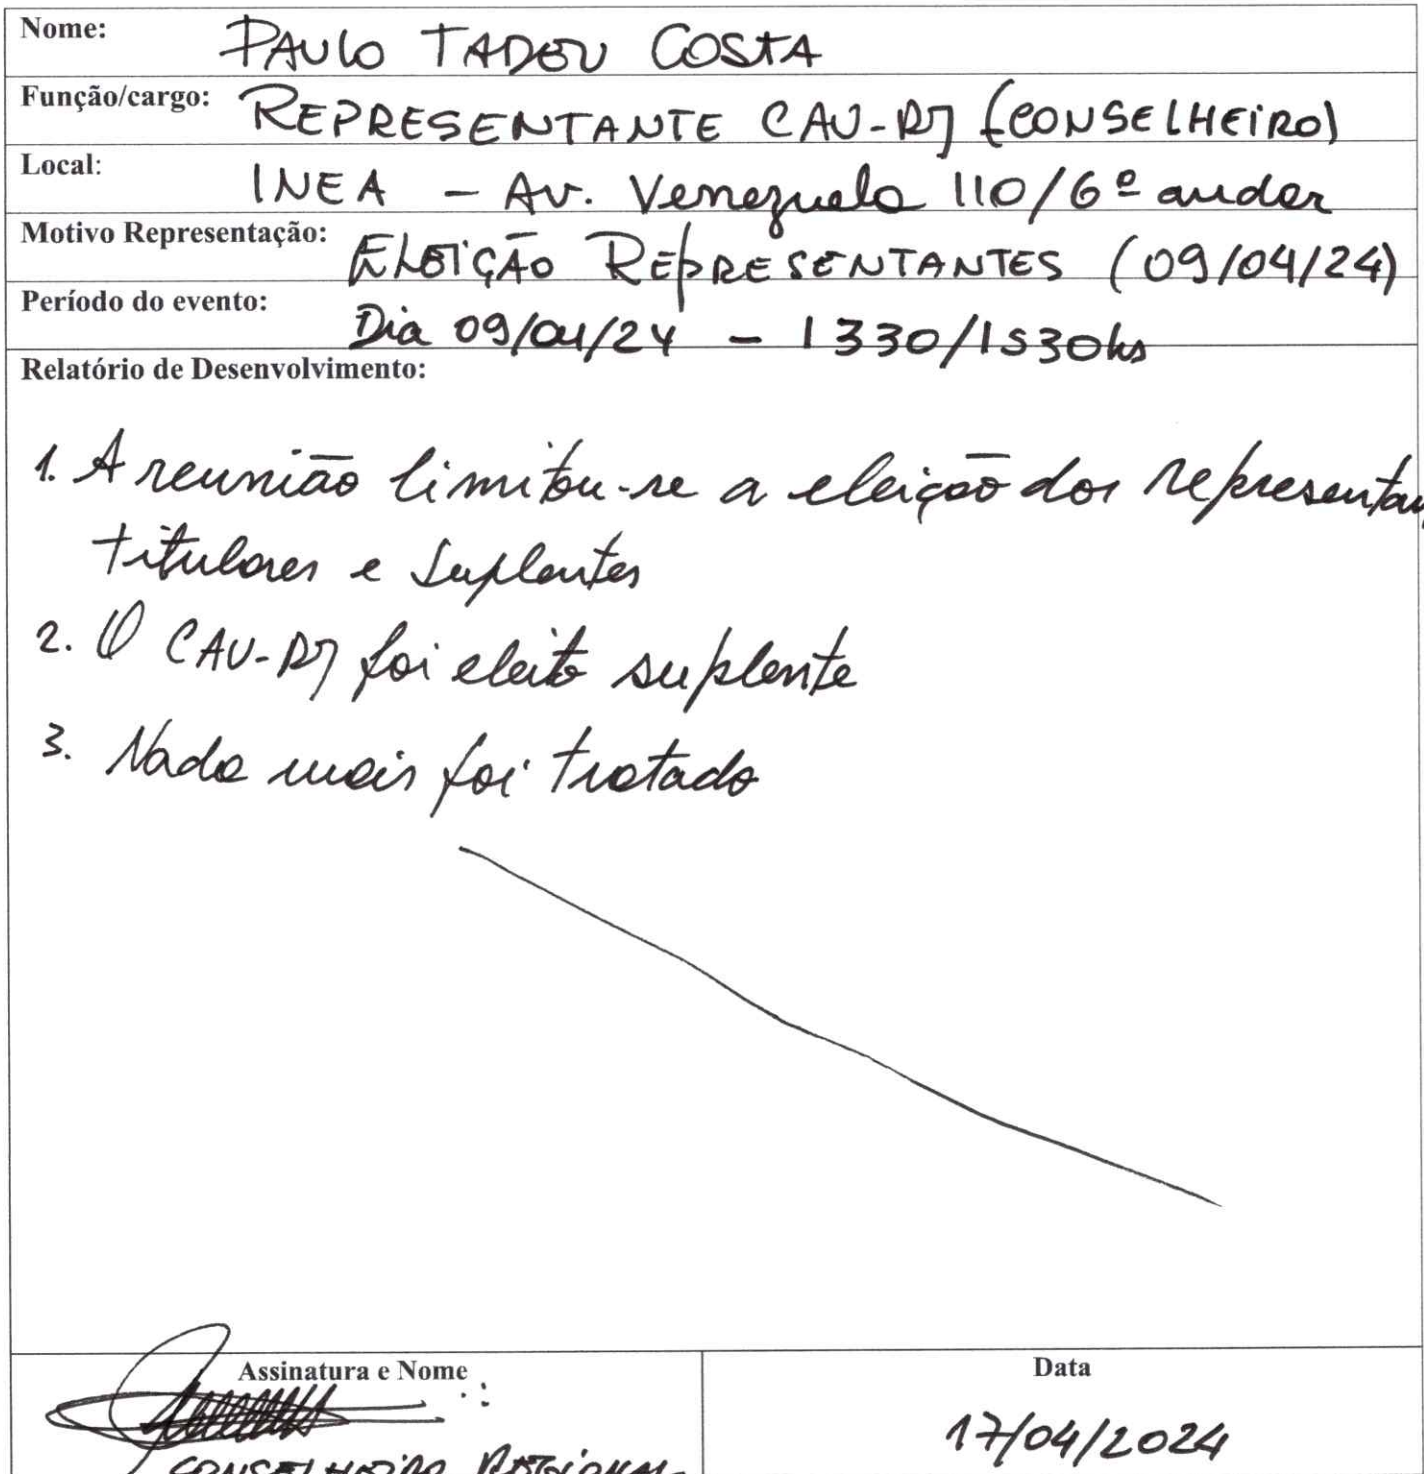 Nome: PAULO TADEU COSTA
Função/cargo: REPRESENTANTE CAU-RJ (CONSELHEIRO)
Local: INEA - Av. Venezuela 110/6º andar
Motivo Representação: ELEIÇÃO REPRESENTANTES (09/04/24)
Período do evento: Dia 09/04/24 - 1330/1530hs
Relatório de Desenvolvimento:
1. A reunião limitou-se a eleição dos representan
titulares e suplentes
2. O CAU-RJ foi eleito suplente
3. Nada mais foi tratado
Assinatura e Nome
CONSELHEIRO REGIONAL
Data
17/04/2024